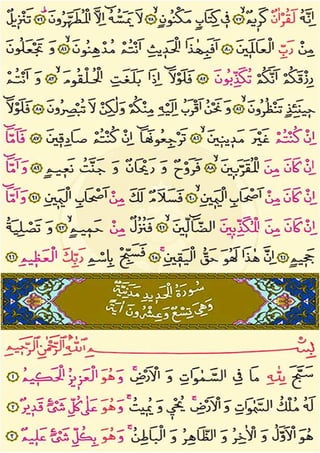 اِنَّهُ لَقُرْاٰنٌ كَر۪يمٌۙ ﴿٧٧﴾ ف۪ي كِتَابٍ مَكْنُونٍۙ ﴿٧٨﴾ لَا يَمَسُّهُٓ اِلَّا الْمُطَهَّرُونَۜ ﴿٧٩﴾ تَنْز۪يلٌ
مِنْ رَبِّ الْعَالَم۪ينَ ﴿٨٠﴾ اَفَبِهٰذَا الْحَد۪يثِ اَنْتُمْ مُدْهِنُونَۙ ﴿٨١﴾ وَتَجْعَلُونَ
رِزْقَكُمْ اَنَّكُمْ تُكَذِّبُونَ ﴿٨٢﴾ فَلَوْلَٓا اِذَا بَلَغَتِ الْحُلْقُومَۙ ﴿٨٣﴾ وَاَنْتُمْ
ح۪ينَئِذٍ تَنْظُرُونَۙ ﴿٨٤﴾ وَنَحْنُ اَقْرَبُ اِلَيْهِ مِنْكُمْ وَلٰكِنْ لَا تُبْصِرُونَ ﴿٨٥﴾ فَلَوْلَٓا
اِنْ كُنْتُمْ غَيْرَ مَد۪ين۪ينَۙ ﴿٨٦﴾ تَرْجِعُونَهَٓا اِنْ كُنْتُمْ صَادِق۪ينَ ﴿٨٧﴾ فَاَمَّٓا
اِنْ كَانَ مِنَ الْمُقَرَّب۪ينَۙ ﴿٨٨﴾ فَرَوْحٌ وَرَيْحَانٌ وَجَنَّتُ نَع۪يمٍ ﴿٨٩﴾ وَاَمَّٓا
اِنْ كَانَ مِنْ اَصْحَابِ الْيَم۪ينِۙ ﴿٩٠﴾ فَسَلَامٌ لَكَ مِنْ اَصْحَابِ الْيَم۪ينِ ﴿٩١﴾ وَاَمَّٓا
اِنْ كَانَ مِنَ الْمُكَذِّب۪ينَ الضَّٓالّ۪ينَۙ ﴿٩٢﴾ فَنُزُلٌ مِنْ حَم۪يمٍۙ ﴿٩٣﴾ وَتَصْلِيَةُ
جَح۪يمٍ ﴿٩٤﴾ اِنَّ هٰذَا لَهُوَ حَقُّ الْيَق۪ينِۚ ﴿٩٥﴾ فَسَبِّحْ بِاسْمِ رَبِّكَ الْعَظ۪يمِ ﴿٩٦﴾
سُورَةُ الْحَد۪يدِ مَدَنِيَّةٌ
وَهِيَ تِسْعٌ وَعِشْرُونَ اٰيَةً
بِسْمِ اللّٰهِ الرَّحْمٰنِ الرَّح۪يمِ
سَبَّحَ لِلّٰهِ مَا فِي السَّمٰوَاتِ وَالْاَرْضِۚ وَهُوَ الْعَز۪يزُ الْحَك۪يمُ ﴿١﴾
لَهُ مُلْكُ السَّمٰوَاتِ وَالْاَرْضِۚ يُحْي۪ وَيُم۪يتُۚ وَهُوَ عَلٰى كُلِّ شَيْءٍ قَد۪يرٌ ﴿٢﴾
هُوَ الْاَوَّلُ وَالْاٰخِرُ وَالظَّاهِرُ وَالْبَاطِنُۚ وَهُوَ بِكُلِّ شَيْءٍ عَل۪يمٌ ﴿٣﴾